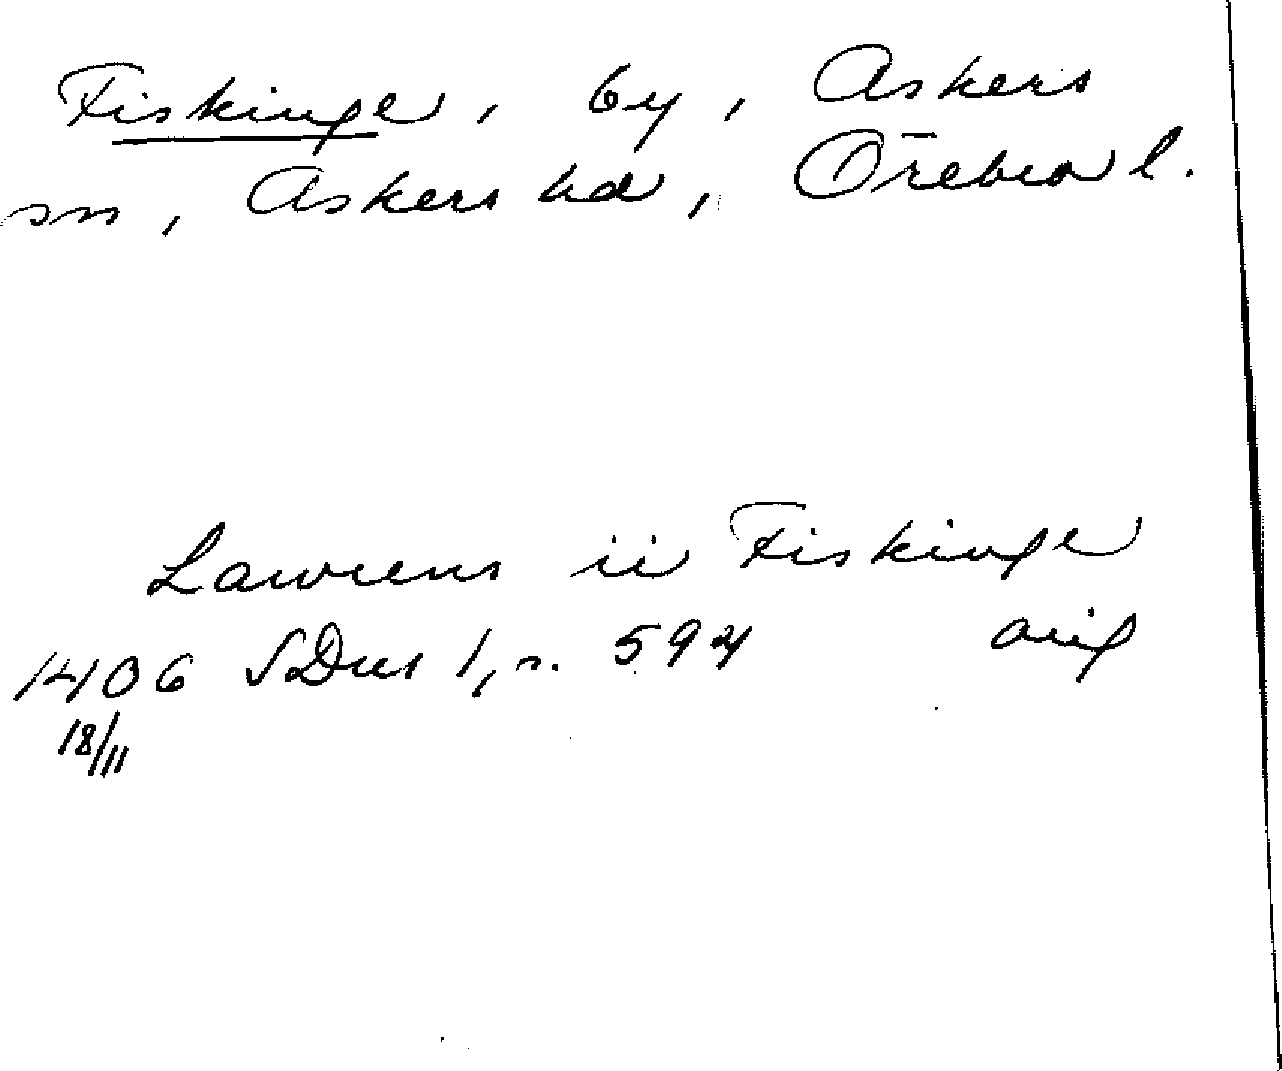 Fiskinge, by, Askers
sn, Askers hd, Örebro l.
Lawrens ii Fiskinge
1406 SDns 1, s. 594 orig
18/11